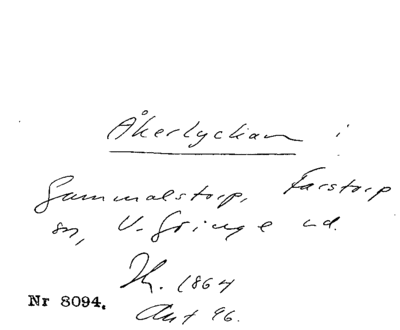 Åkerlyckan i
Gammalstorp, Farstorp
sn, V. Göinge hd.
Th. 1864
Ant 96.
Nr 8094.